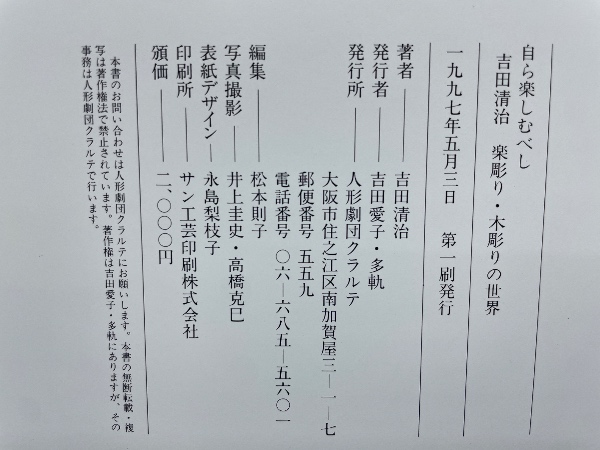 自ら楽しむべし
吉田清治 楽彫り・木彫りの世界
一九九七年五月三日 第一刷発行
著者――吉田清治
発行者――吉田愛子・多軌
発行所――人形劇団クラルテ
大阪市住之江区南加賀屋三―一―七
郵便番号 五五九
電話番号 〇六―六八五―五六〇一
編集――松本則子
写真撮影――井上圭史・高橋克巳
表紙デザイン―永島梨枝子
印刷所――サン工芸印刷株式会社
頒価――二、〇〇〇円
本書のお問い合わせは人形劇団クラルテにお願いします。本書の無断転載・複
写は著作権法で禁止されています。著作権は吉田愛子・多軌にありますが、その
事務は人形劇団クラルテで行います。